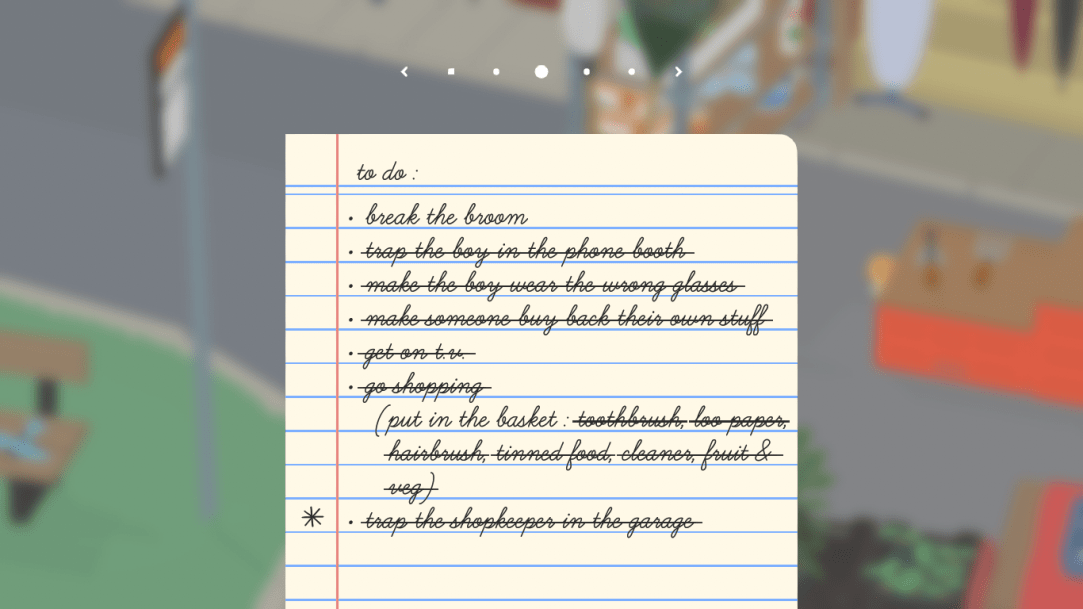 to do :
• break the broom
• trap the boy in the phone booth
• make the boy wear the wrong glasses
• make someone buy back their own stuff
• get on t.v.
• go shopping
(put in the basket : toothbrush, loo paper,
hairbrush, tinned food, cleaner, fruit &
veg)
• trap the shopkeeper in the garage